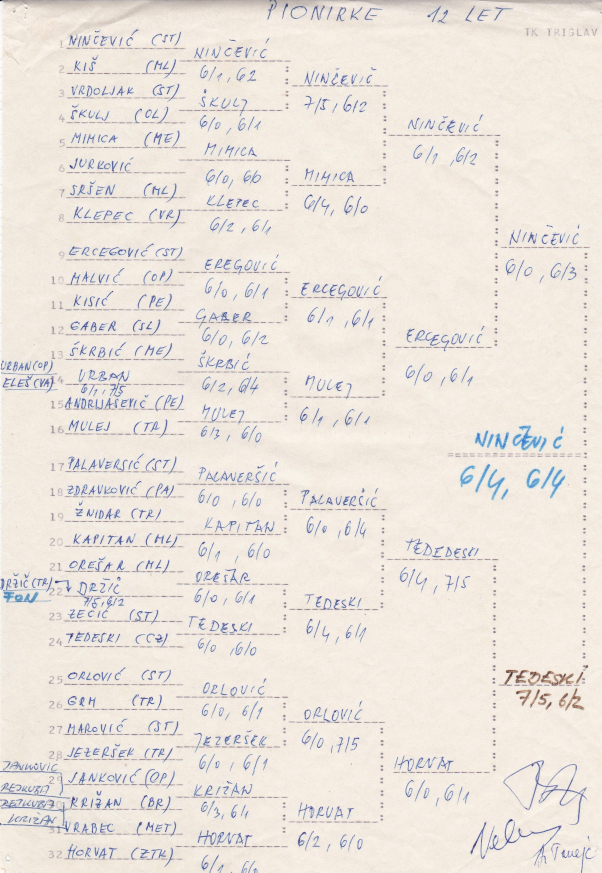 PIONIRKE 12 LET
TK TRIGLAV
1 NINČEVIĆ (ST)
2 KIŠ (ML)
3 VRDOLJAK (ST)
4 ŠKULJ (OL)
5 MIMICA (ME)
6 JURKOVIĆ
7 SRŠEN (ML)
8 KLEPEC (VR)
9 ERCEGOVIĆ (ST)
10 MALVIĆ (OP)
11 KISIĆ (PE)
12 GABER (SL)
13 ŠKRBIĆ (ME)
URBAN (OP)
ELEŠ (VA)
14 URBAN
6/1, 7/5
15 ANDRIJAŠEVIĆ (PE)
16 MULEJ (TR)
17 PALAVERSIĆ (ST)
18 ZDRAVKOVIĆ (PA)
19 ŽNIDAR (TR)
20 KAPITAN (ML)
21 OREŠAR (ML)
DRŽIČ (TR)
FON
22 DRŽIČ
7/5, 6/2
23 ZEČIĆ (ST)
24 TEDESKI (CZ)
25 ORLOVIĆ (ST)
26 GRM (TR)
27 MAROVIĆ (ST)
28 JEZERŠEK (TR)
JANKOVIC
29 JANKOVIĆ (OP)
REJKUBA
REJKUBA
KRIŽAN
30 KRIŽAN (BR)
31 VRABEC (MET)
32 HORVAT (ZTK)
NINČEVIĆ
6/1, 62
ŠKULJ
6/0, 6/1
MIMICA
6/0, 6/0
KLEPEC
6/2, 6/1
EREGOVIĆ
6/0, 6/1
GABER
6/0, 6/2
ŠKRBIĆ
6/2, 6/4
MULEJ
6/3, 6/0
PALAVERŠIĆ
6/0, 6/0
KAPITAN
6/1, 6/0
OREŠAR
6/0, 6/1
TEDESKI
6/0, 6/0
ORLOVIĆ
6/0, 6/1
JEZERŠEK
6/0, 6/1
KRIŽAN
6/3, 6/1
HORVAT
6/1, 6/0
NINČEVIČ
7/5, 6/2
MIMICA
6/4, 6/0
ERCEGOVIĆ
6/1, 6/1
MULEJ
6/1, 6/1
PALAVERŠIĆ
6/0, 6/4
TEDESKI
6/4, 6/1
ORLOVIĆ
6/0, 7/5
HORVAT
6/2, 6/0
NINČEVIĆ
6/1, 6/2
ERCEGOVIĆ
6/0, 6/1
TEDEDESKI
6/4, 7/5
HORVAT
6/0, 6/1
NINČEVIĆ
6/0, 6/3
TEDESKI
7/5, 6/2
NINČEVIĆ
6/4, 6/4